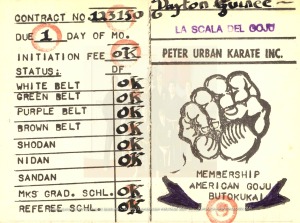 CONTRACT NO. 123150
DUE 1 DAY OF MO.
INITIATION FEE OK
STATUS: OF
WHITE BELT OK
GREEN BELT OK
PURPLE BELT OK
BROWN BELT OK
SHODAN OK
NIDAN OK
SANDAN
MKS GRAD. SCHL. OK
REFEREE SCHL. OK
LA SCALA DEL GOJU
PETER URBAN KARATE INC.
MEMBERSHIP
AMERICAN GOJU
BUTOKUKAI